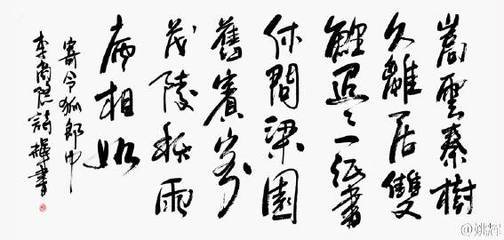 嵩雲秦樹
久離居雙
鯉迢〻一紙書
休問梁園
舊賓客
茂陵秋雨
病相如
寄令狐郎中
李商隐詩輝書
@姚輝